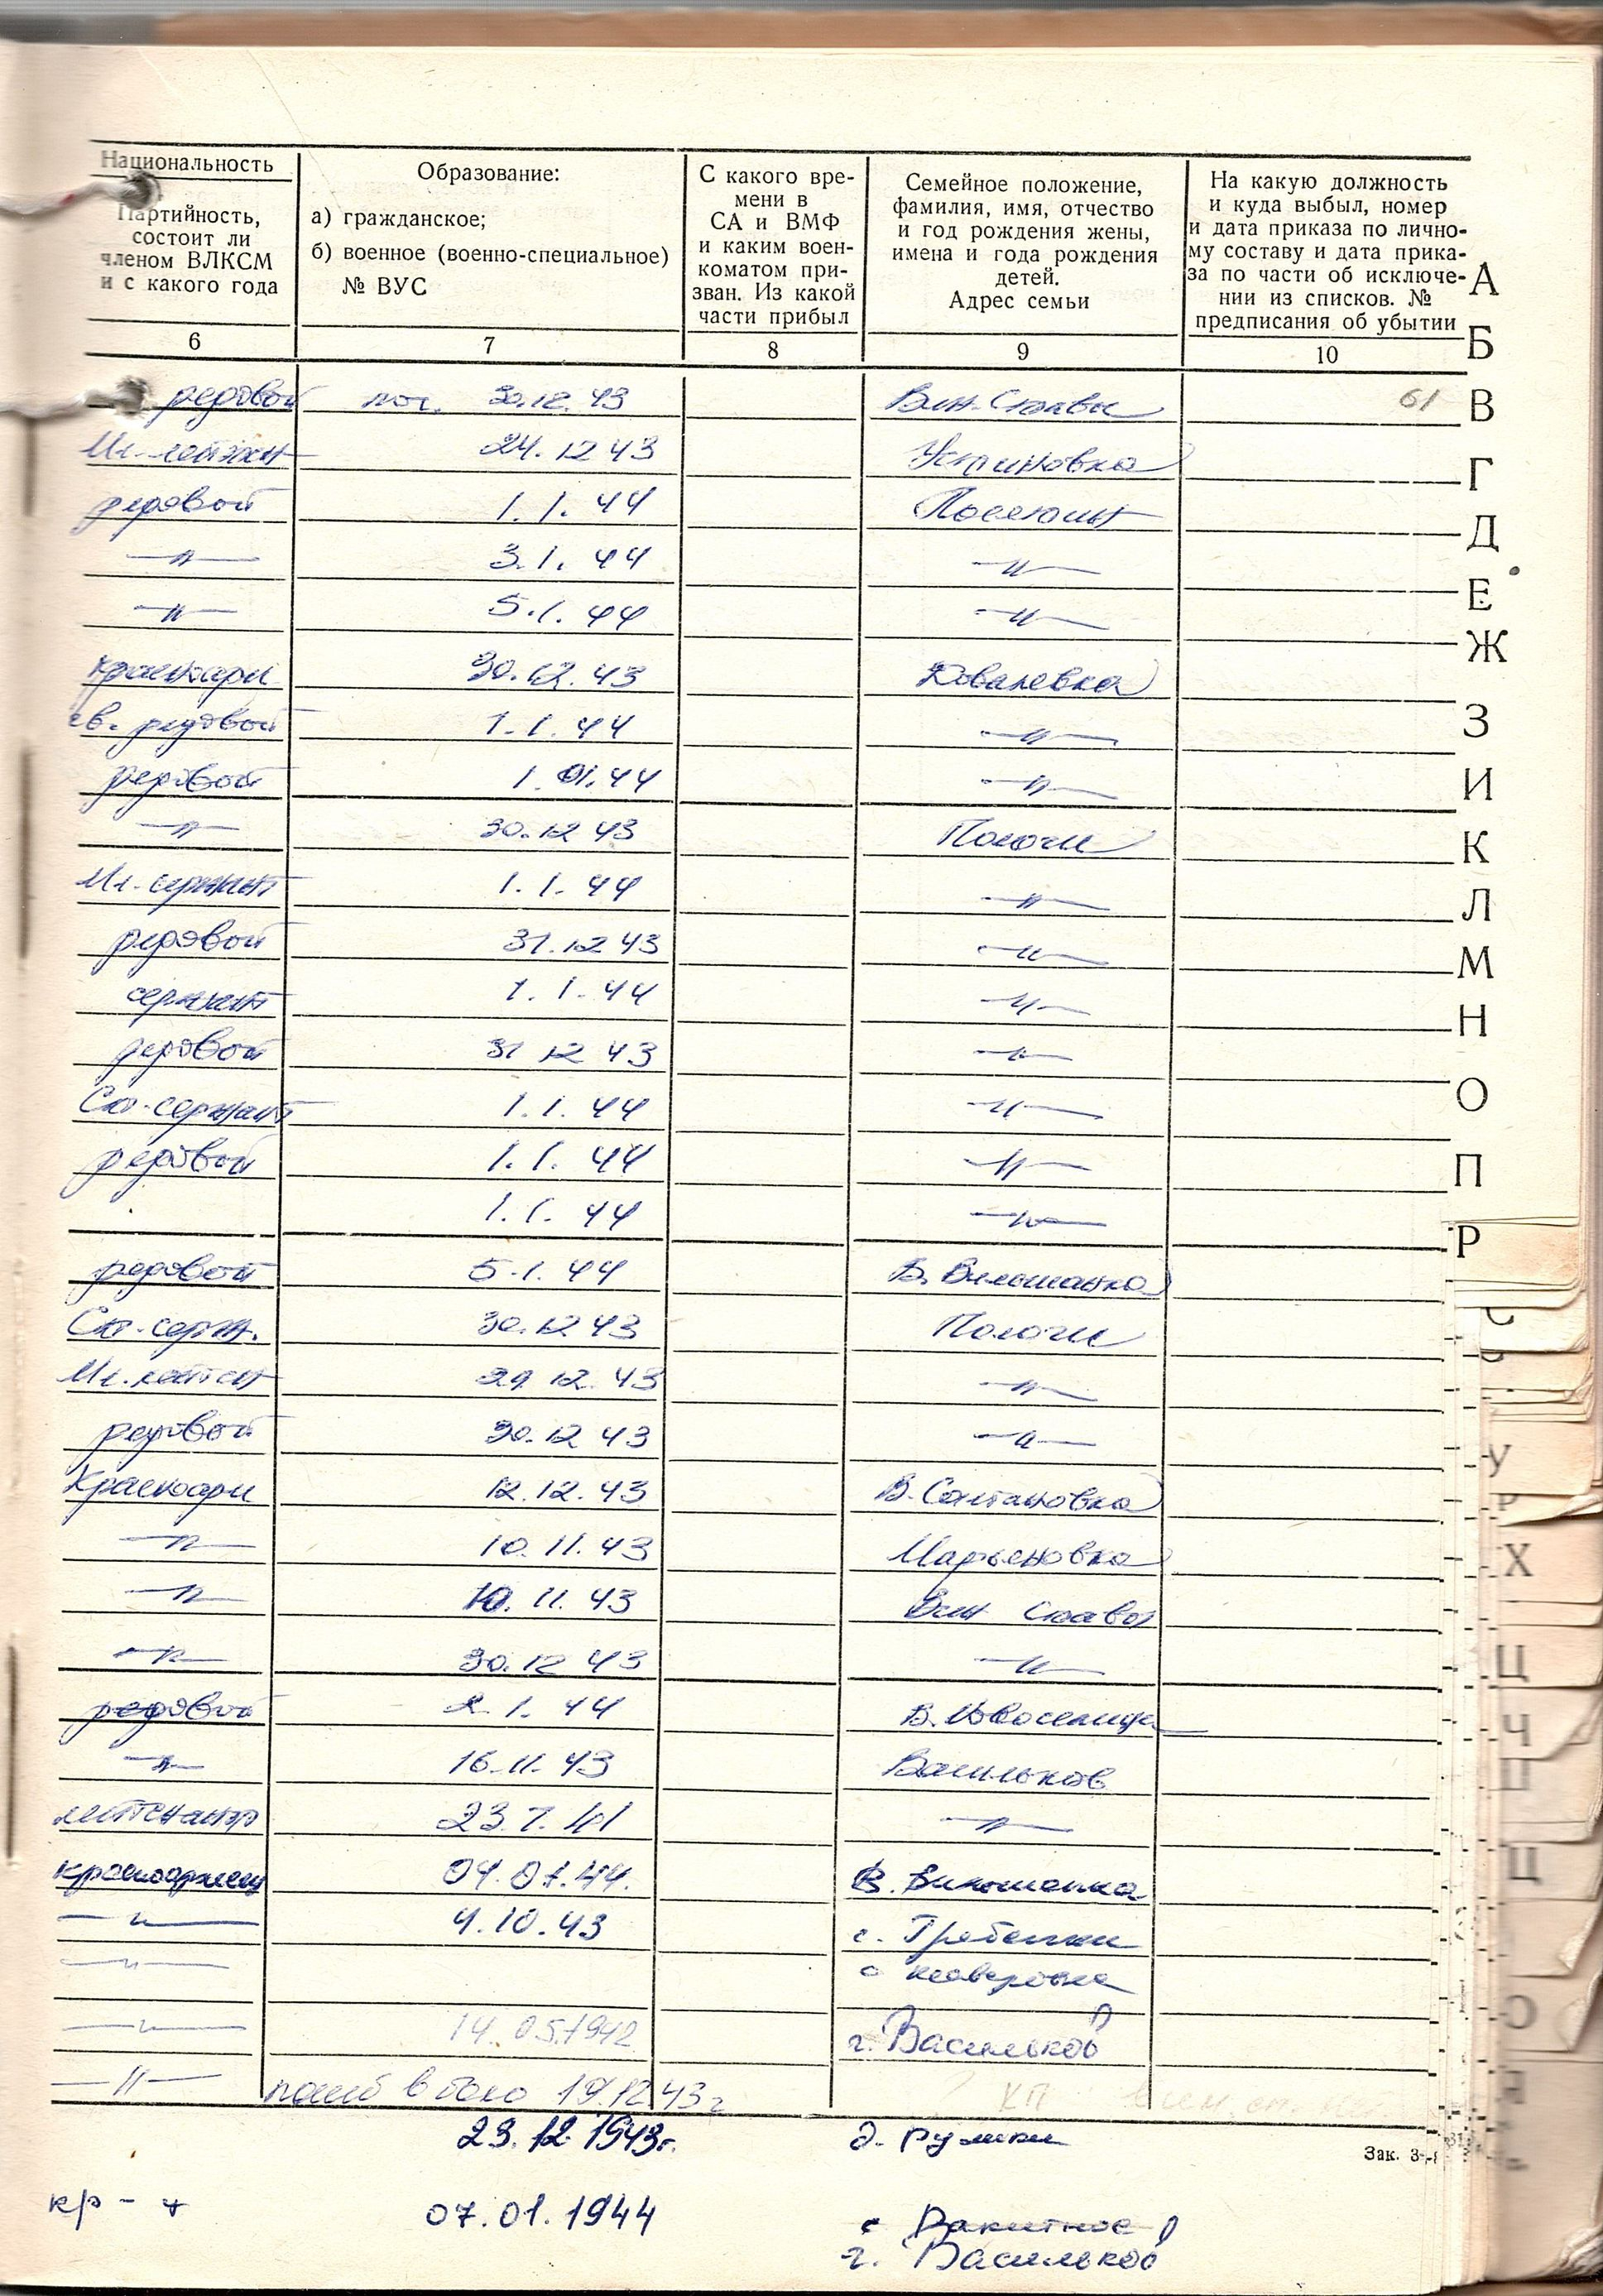 Национальность
Партийность,
состоит ли
членом ВЛКСМ
и с какого года
Образование:
а) гражданское;
б) военное (военно-специальное)
№ ВУС
С какого вре-
мени в
СА и ВМФ
и каким воен-
коматом при-
зван. Из какой
части прибыл
Семейное положение,
фамилия, имя, отчество
и год рождения жены,
имена и года рождения
детей.
Адрес семьи
На какую должность
и куда выбыл, номер
и дата приказа по лично-
му составу и дата прика-
за по части об исключе-
нии из списков. №
предписания об убытии
6 7 8 9 10
рядовой пог. 30.12.43 Вин-Ставы 61
Мл-лейтент 24.12 43 Устиновка
рядовой 1.1.44
—"— 3.1.44 —"—
—"— 5.1.44 —"—
красноарм 30.12.43 Ковалевка
гв. рядовой 1.1.44 —"—
рядовой 1.01.44 —"—
—"— 30.12 43 Пологи
Мл-сержант 1.1.44 —"—
рядовой 31.12 43 —"—
сержант 1.1.44 —"—
рядовой 31 12 43 —"—
Ст-сержант 1.1.44 —"—
рядовой 1.1.44 —"—
1.1.44 —"—
рядовой 5.1.44
Ст-серж. 30.12 43 Пологи
Мл. 29.12.43 —"—
рядовой 30.12 43 —"—
Красноарм 12.12.43 В-Солтановка
—"— 10.11.43 Марьяновка
—"— 10.11.43 Вин Ставы
—"— 30.12 43 —"—
рядовой 2.1.44 В.Новоселица
—"— 16.11.43 Васильков
лейтенант 23.7.41 —"—
красноармеец 04.01.44.
—"— 4.10.43 с. Гребенки
—"— с
—"— 14.05.1942 г. Васильков
—"— погиб в бою 19.12 43 г КП
23.12.1943г. д.
Зак. 3-
кр-ц 07.01.1944 с Ракитное
г. Васильков
А
Б
В
Г
Д
Е
Ж
З
И
К
Л
М
Н
О
П
Р
С
У
Х
Ц
Ч
Ц